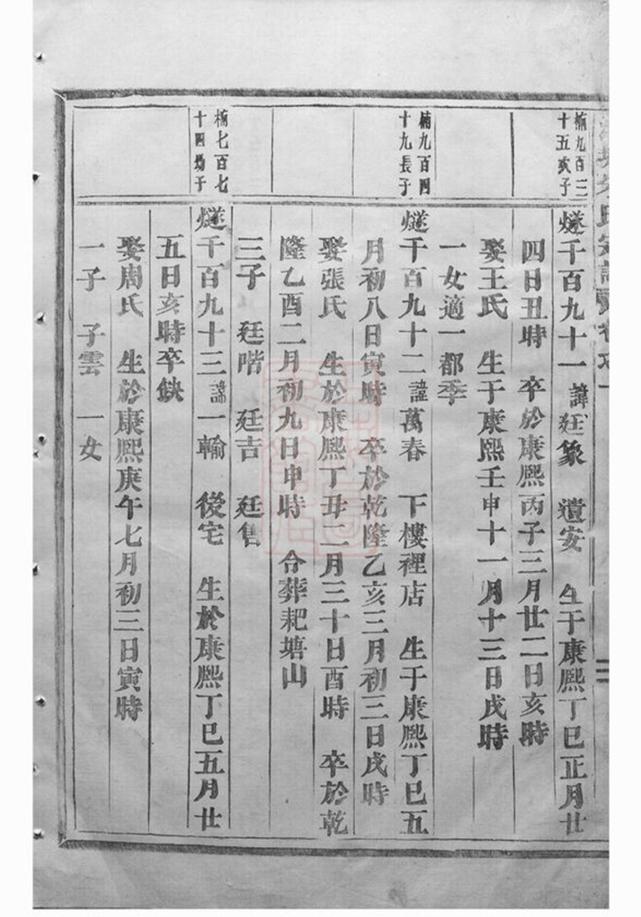 楠九百三
十五次子
燧千百九十一 諱廷象 遺安 生于康熙丁巳正月廿
四日丑時 卒於康熙丙子三月廿二日亥時
娶王氏 生于康熙壬申十一月十三日戌時
一女適一都季
楠九百四
十九長子
燧千百九十二 諱萬春 下樓裡店 生于康熙丁巳五
月初八日寅時 卒於乾隆乙亥三月初三日戌時
娶張氏 生於康熙丁丑二月三十日酉時 卒於乾
隆乙酉二月初九日申時 合葬耙塘山
三子 廷喈 廷吉 廷售
楠七百七
十四幼子
燧千百九十三 諱一輪 後宅 生於康熙丁巳五月廿
五日亥時卒缺
娶周氏 生於康熙庚午七月初三日寅時
一子 子雲 一女